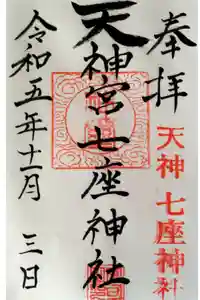 奉拝
天神七座神社
天神宮七座神社
令和五年十一月三日